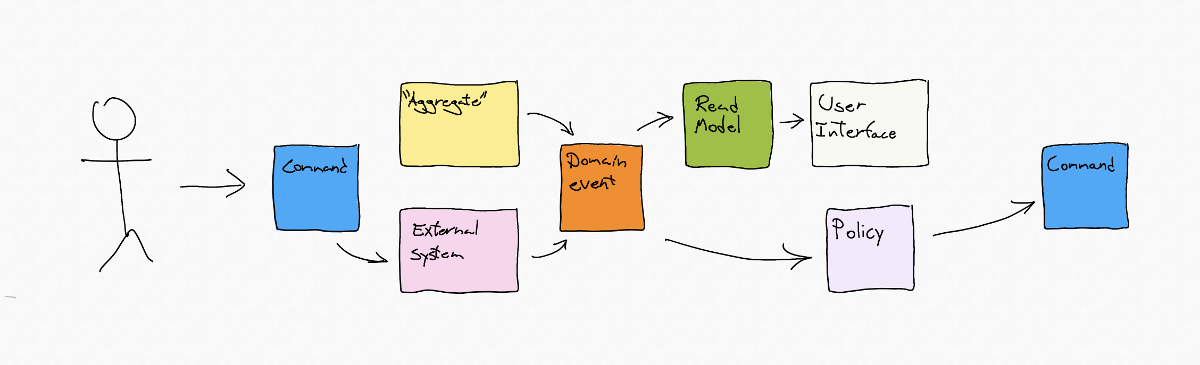 "Aggregate"
Command
External
system
Domain
event
Read
Model
User
Interface
Policy
Command